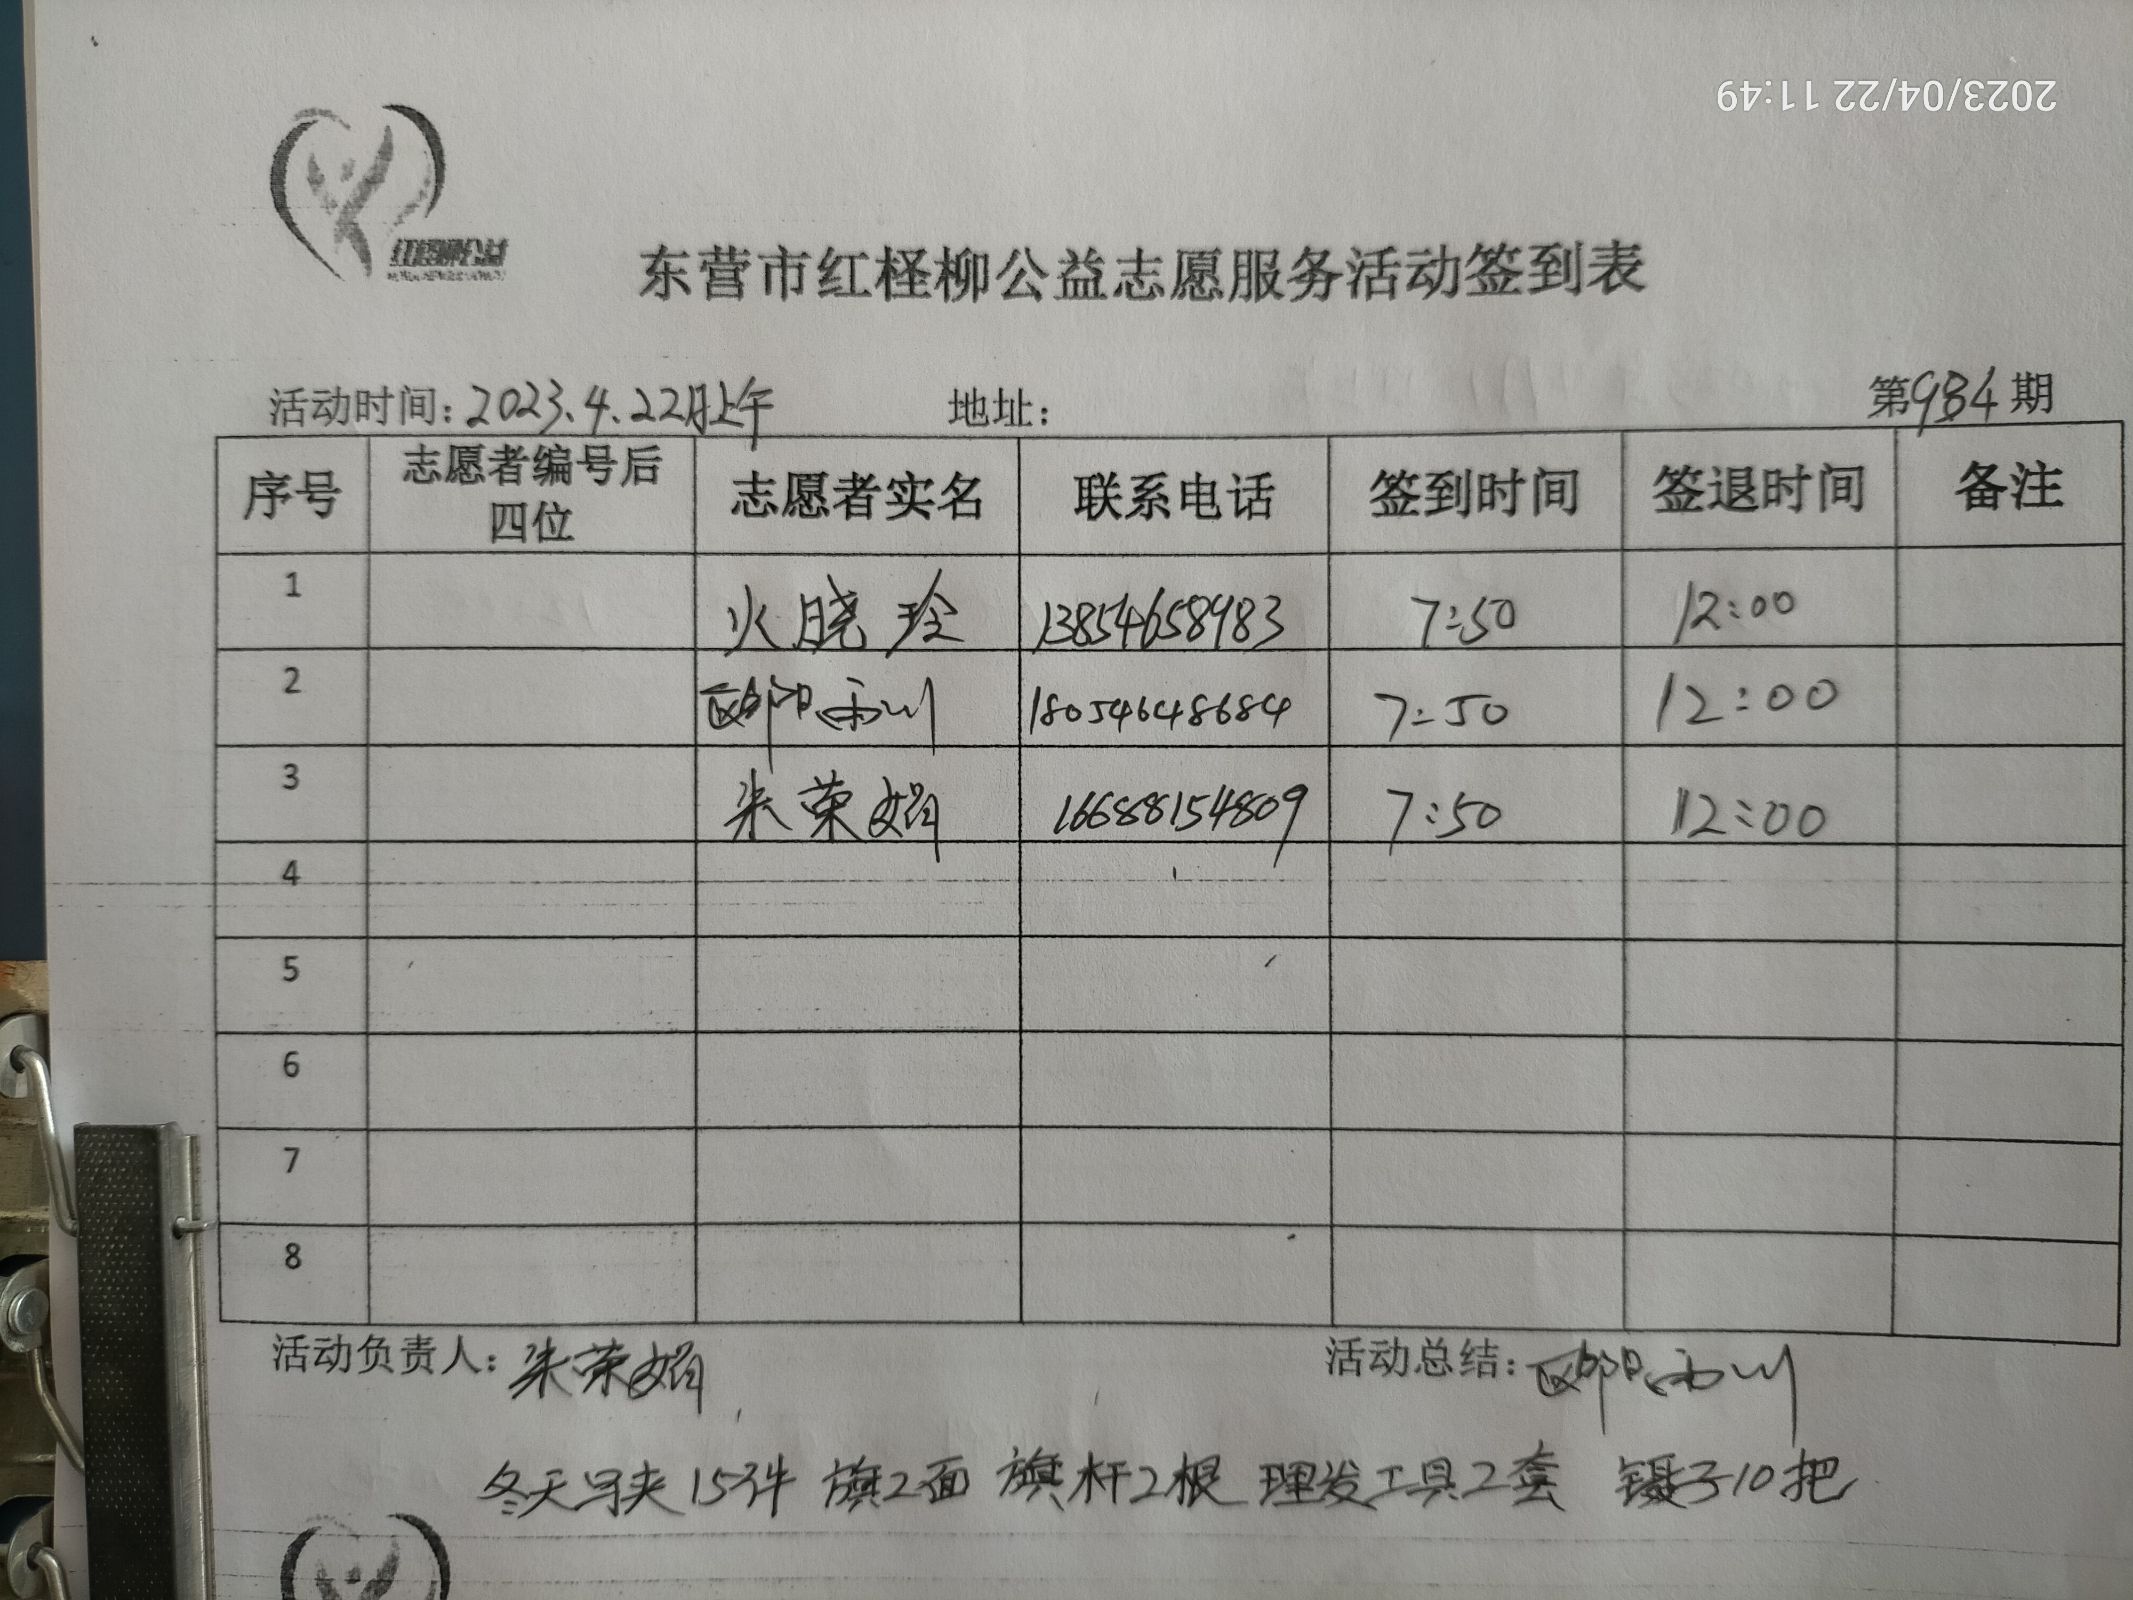 2023/04/22 11:49
红柽柳公益
东营市红柽柳公益志愿服务活动签到表
活动时间：2023.4.22日上午 地址： 第984期
序号 志愿者编号后四位 志愿者实名 联系电话 签到时间 签退时间 备注
1 火晓玲 13854658983 7:50 12:00
2 18054648684 7:50 12:00
3 朱荣娟 16688154809 7:50 12:00
4
5
6
7
8
活动负责人：朱荣娟 活动总结：
冬天马夹15件 旗2面 旗杆2根 理发工具2套 镊子10把